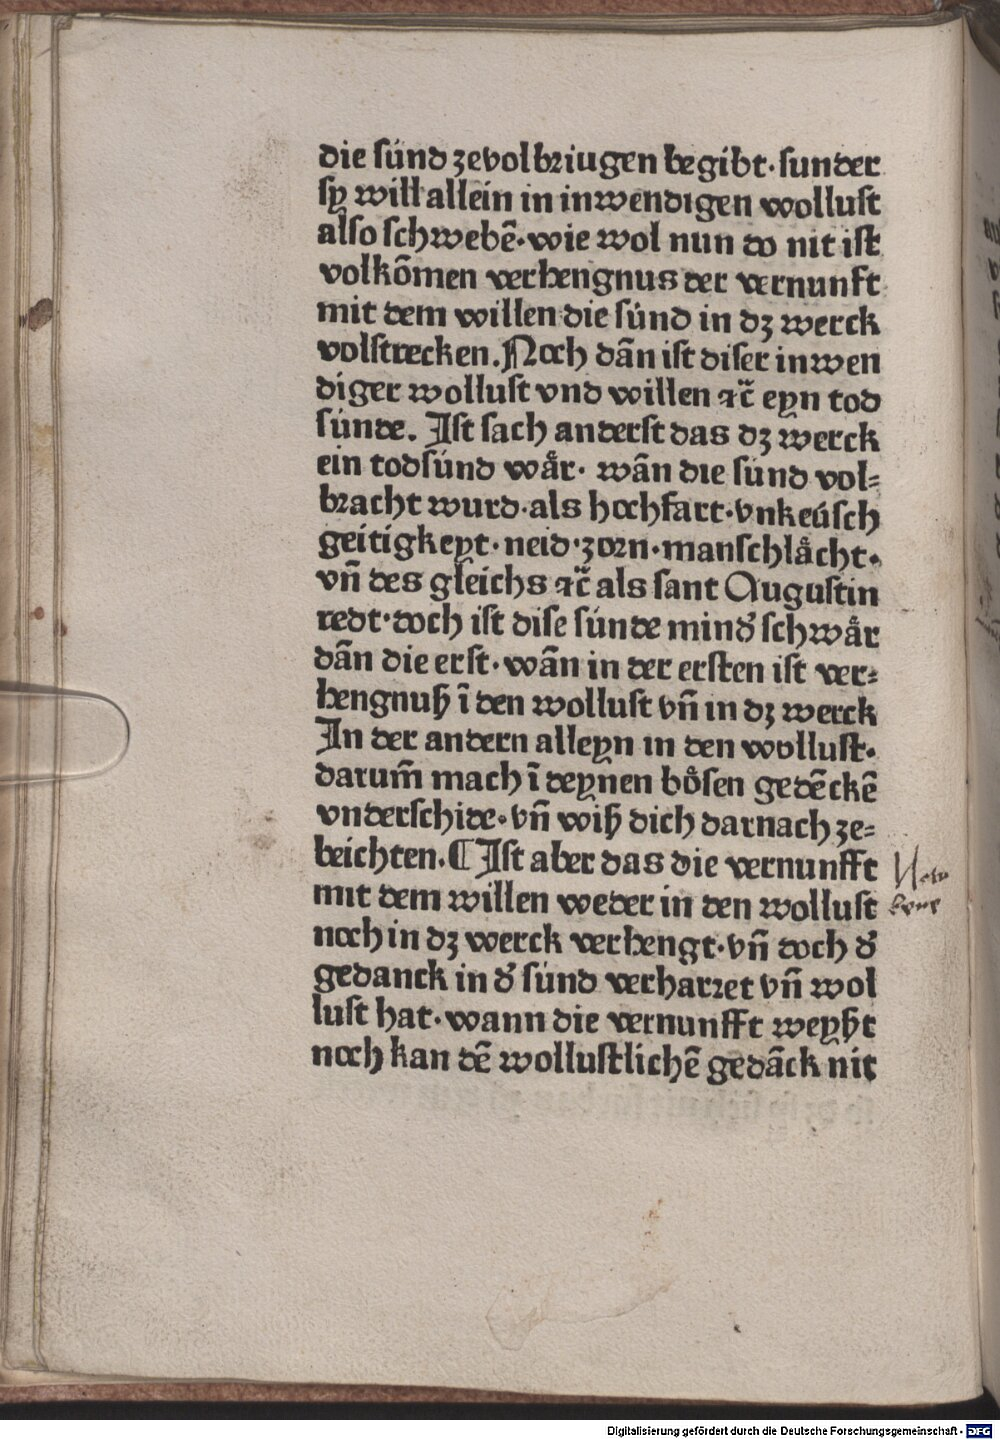 die súnd zevolbriugen begibt· sunder
sy will allein in inwendigen wollust
also schwebē· wie wol nun do nit ist
volkōmen verhengnus der vernunft
mit dem willen die súnd in dz werck
volstrecken. Noch dān ist diser inwen
diger wollust vnd willen ꝛc̄ eyn tod
súnde. Ist sach anderst das dz werck
ein todsúnd waͤr· wān die súnd vol⸗
bracht wurd· als hochfart· vnkeúsch
geitigkeyt· neid· zorn· manschlaͤcht·
vn̄ des gleichs ꝛc̄ als sant Augustin
redt· doch ist dise súnde minđ schwaͤr
dān die erst· wān in der ersten ist ver⸗
hengnuß ī den wollust vn̄ in dz werck
In der andern alleyn in den wollust·
darum̄ mach ī deynen boͤsen gedēckē
vnderschide· vn̄ wiß dich darnach ze⸗
beichten. ¶ Ist aber das die vernunfft
mit dem willen weder in den wollust
noch in dz werck verhengt· vn̄ doch đ
gedanck in đ súnd verharret vn̄ wol
lust hat· wann die vernunfft weyßt
noch kan dē wollustlichē gedāck nit
Digitalisierung gefördert durch die Deutsche Forschungsgemeinschaft - DFG